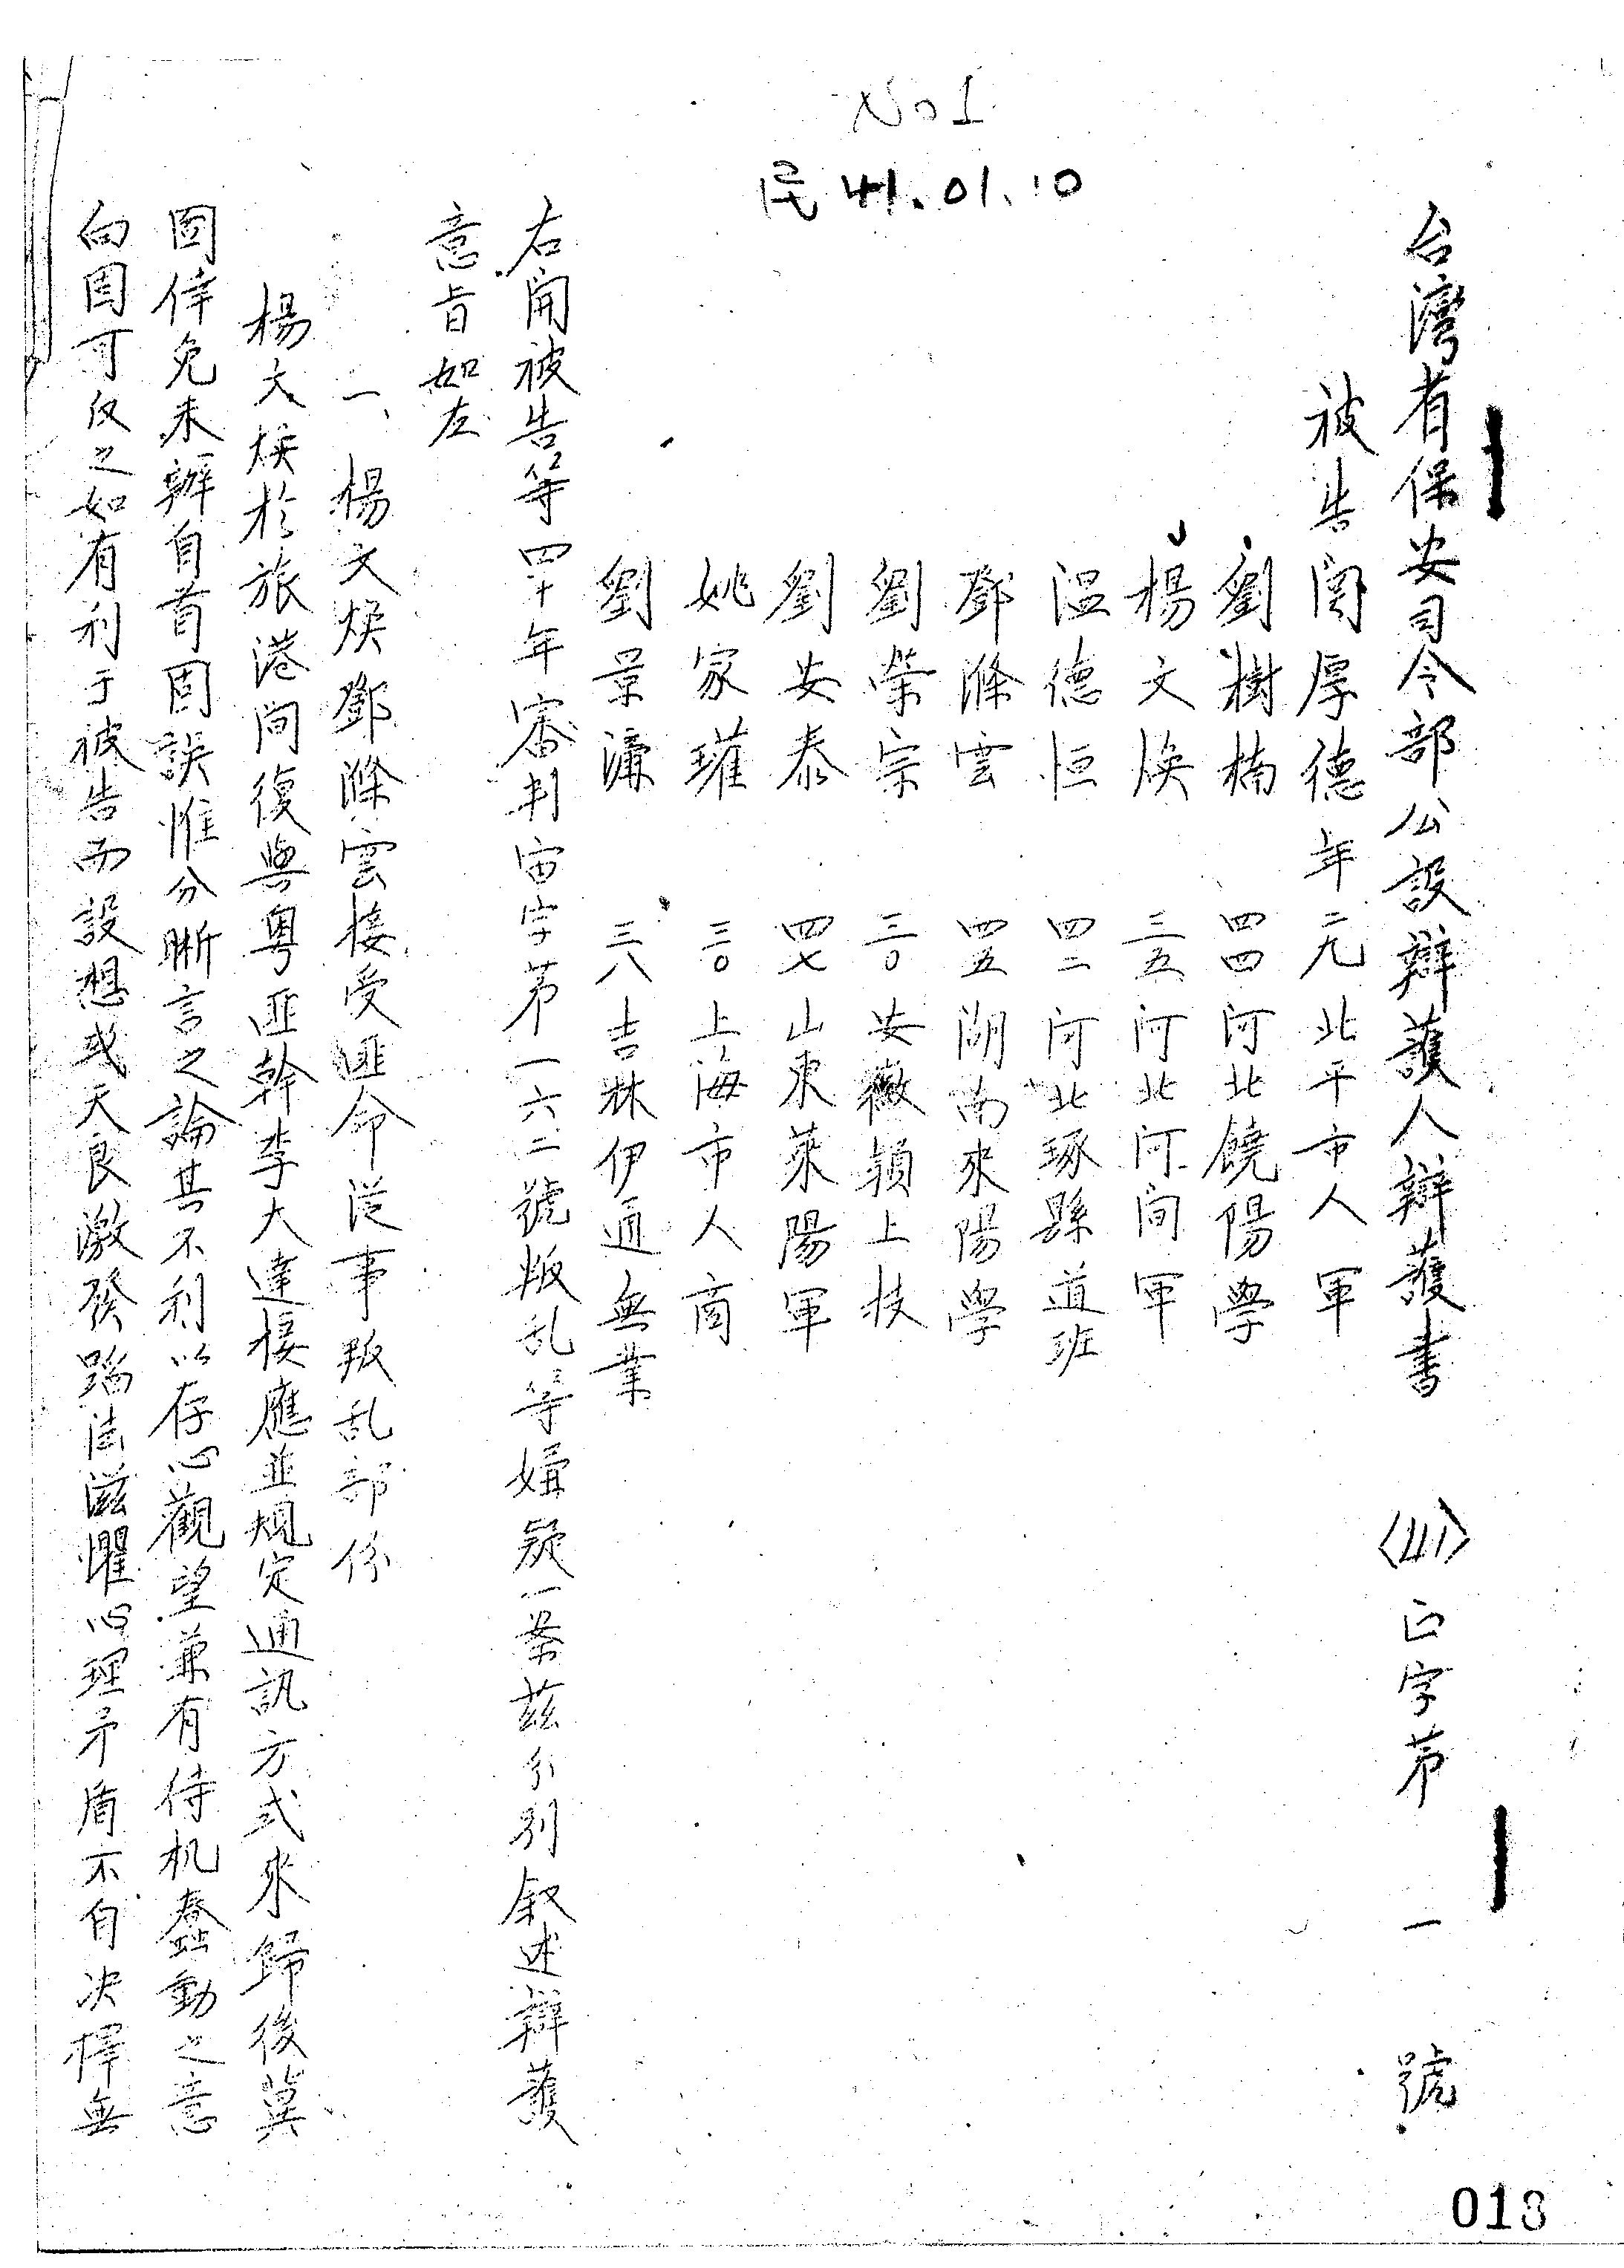 No 1
民 41.01.10
台灣省保安司令部公設辯護人辯護書 〈41〉正字第 一 號
被告 閻厚德 年二九 北平市人 軍
劉樹楠 四四 河北饒陽 學
楊文焕 三五 河北河间 軍
温德恒 四二 河北琢縣 道班
鄧滌雲 四五 湖南來陽 學
劉榮宗 三〇 安徽潁上 技
劉安泰 四七 山東萊陽 軍
姚家璀 三〇 上海市人 商
劉景濂 三八 吉林伊通 無業
右開被告等四十年審判宙字第一六二號叛乱等嫌疑一案茲分別叙述辯護
意旨如左
一、楊文焕鄧滌雲接受匪命從事叛乱部份
楊文焕於旅港间復與粤匪幹李大達接應並規定通訊方式來歸後冀
圖倖免未辦自首固誤惟分晰言之論其不利以存心觀望兼有待机蠢動之意
向固可仅之如有利于被告而設想或天良激發蹈法滋懼心理矛盾不自决擇無